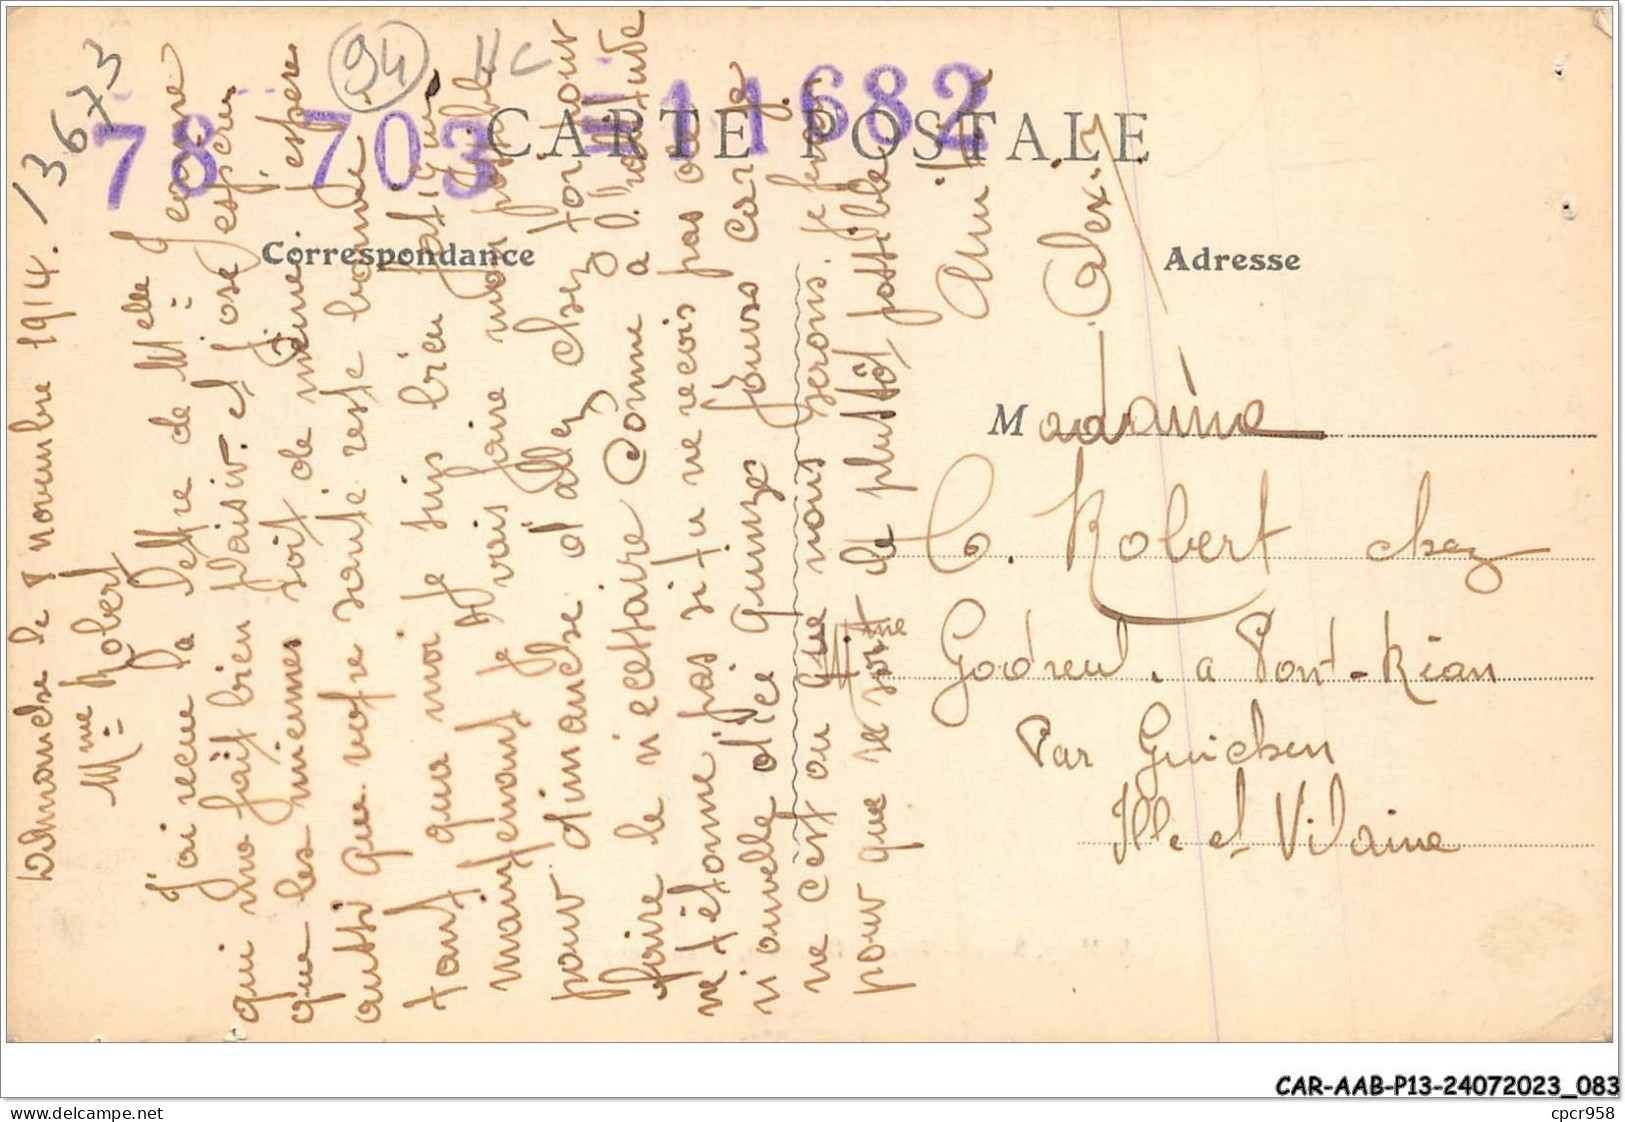 13673
94
HC
78 703 = 11682
CARTE POSTALE
Correspondance
Adresse
Dimanche le 8 novembre 1914.
Mme Robert
J'ai reçue la lettre de Melle Jeanne
qui mo fait bien plaisir. et j'ose espérer
que les miennes soit de même. j'espère
autti que votre santé reste bonne.
tant que moi je suis bien fatigué
maintenant je vais faire mon possible
pour dimanche d'allez chez
faire le nécettaire comme a l'abitude
ne t'étonne pas si tu ne recois pas de
nouvelle d'ici quinze jours car je
ne c'est ou que nous serons. je ferai
pour que se soit le plutôt possible
Mme
Ami
Alex.
Madame
C. Robert chez
Godreul. a Pont-Réan
Par Guichen
Ille et Vilaine
CAR-AAB-P13-24072023_083
www.delcampe.net
cpcr958